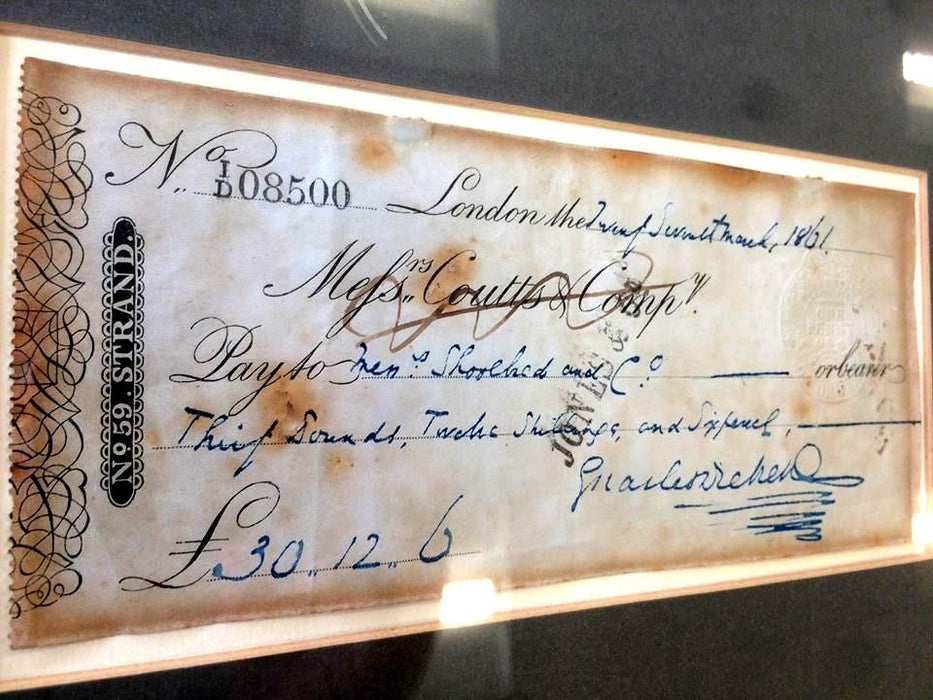 No. 59. STRAND.
No. I/D 08500
London the Twenty Seventh March, 1861.
Messrs. Coutts & Compy.
Pay to Messrs and Co. or bearer
Thirty Pounds, Twelve Shillings, and Sixpence,
JONES
Charles Dickens
£30 „ 12 „ 6